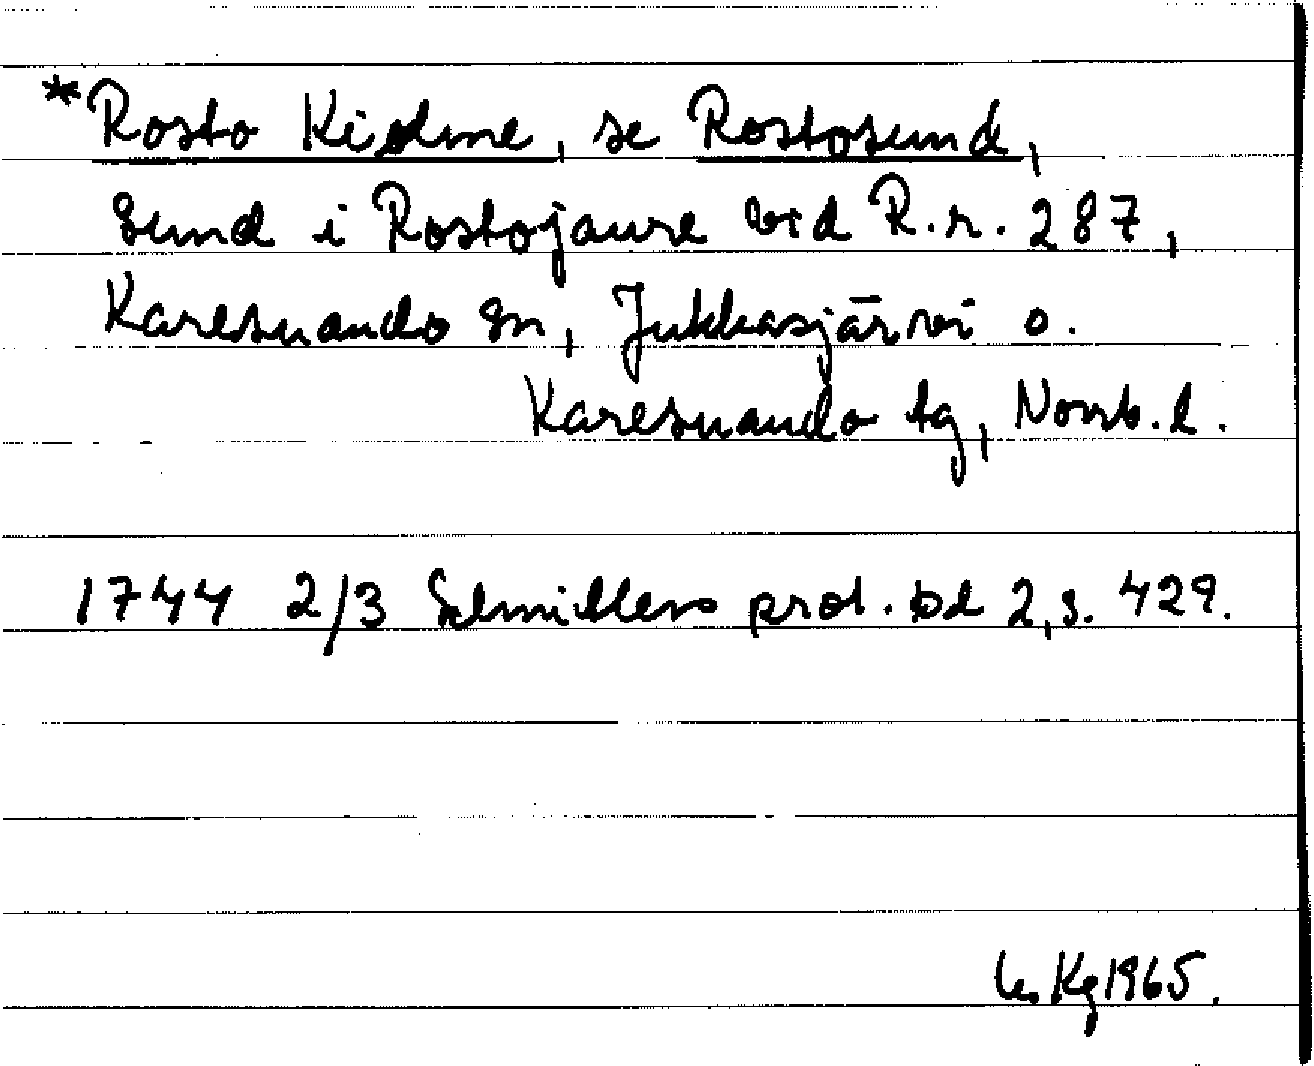 *Rosto Kiedme, se Rostosund,
Sund i Rostojaure vid R.r. 287,
Karesuando sn, Jukkasjärvi o.
Karesuando tg, Norrb. l.
1744 2/3 Schnitlers prot. bd 2, s. 429.
Kg 1965.